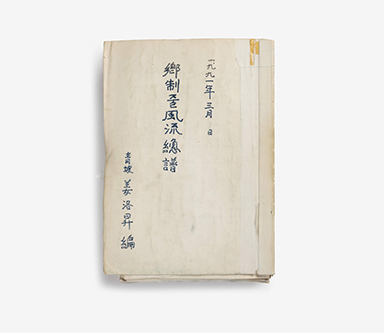 一九九一年 三月 日
鄕制줄風流總譜
靑坡 姜洛昇 編